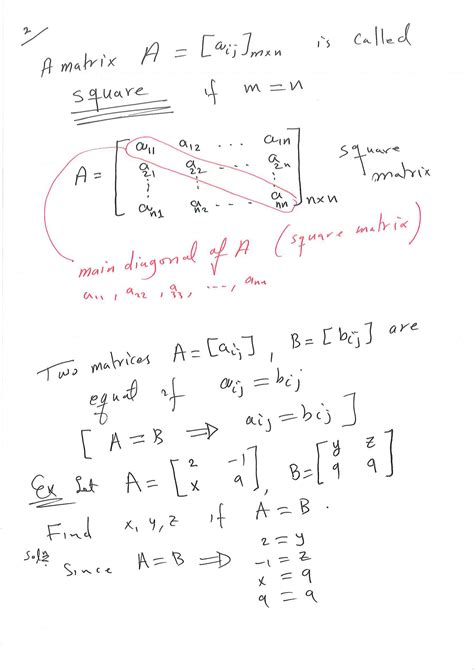 2/
A matrix A = [aij]m×n is called
square if m = n
A = [ a11 a12 ... a1n
a21 a22 ... a2n
⋮ ⋮ ⋮
an1 an2 ... ann ] n×n square matrix
main diagonal of A (square matrix)
a11, a22, a33, ..., ann
Two matrices A = [aij], B = [bij] are
equal if aij = bij
[ A = B ⇒ aij = bij ]
Ex Let A = [ 2 -1
x 9 ], B = [ y z
9 9 ]
Find x, y, z if A = B.
Since A = B ⇒ 2 = y
-1 = z
x = 9
9 = 9